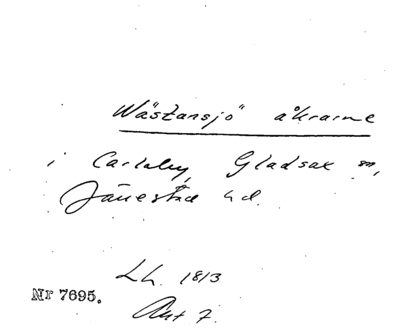 Wästansjö åkrarne
i Carlaby, Gladsax sn,
Järrestad hd.
Lh. 1813
Akt 7.
Nr 7695.